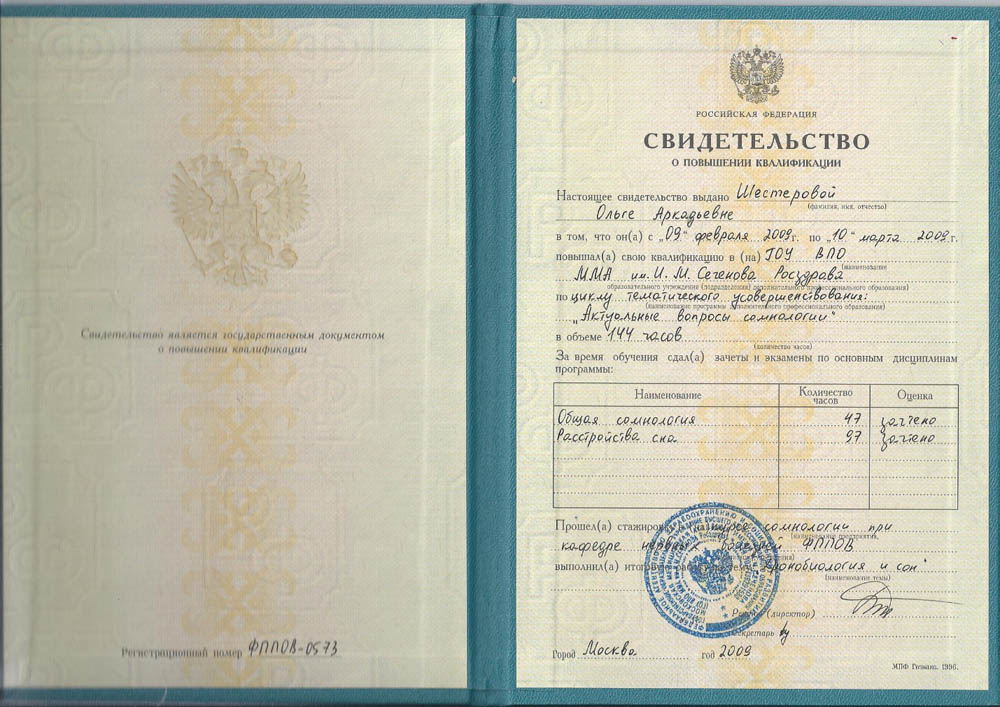 Свидетельство является государственным документом
о повышении квалификации
Регистрационный номер ФППОВ-0573
РОССИЙСКАЯ ФЕДЕРАЦИЯ
СВИДЕТЕЛЬСТВО
О ПОВЫШЕНИИ КВАЛИФИКАЦИИ
Настоящее свидетельство выдано Шестеровой
(фамилия, имя, отчество)
Ольге Аркадьевне
в том, что он(а) с „09“ февраля 2009 г. по „10“ марта 2009 г.
повышал(а) свою квалификацию в (на) ГОУ ВПО
(наименование
ММА им. И. М. Сеченова Росздрава
образовательного учреждения (подразделения) дополнительного профессионального образования)
по циклу тематического усовершенствования:
(наименование программы дополнительного профессионального образования)
„Актуальные вопросы сомнологии“
в объеме 144 часов
(количество часов)
За время обучения сдал(а) зачеты и экзамены по основным дисциплинам
программы:
Наименование Количество часов Оценка
Общая сомнология 47 зачтено
Расстройства сна 97 зачтено
Прошел(а) сомнологии при
(наименование предприятия,
кафедре нервных болезней ФППОВ
выполнил(а) „Хронобиология и сон“
(наименование темы)
(директор)
Секретарь
Город Москва год 2009
МПФ Гознака. 1996.